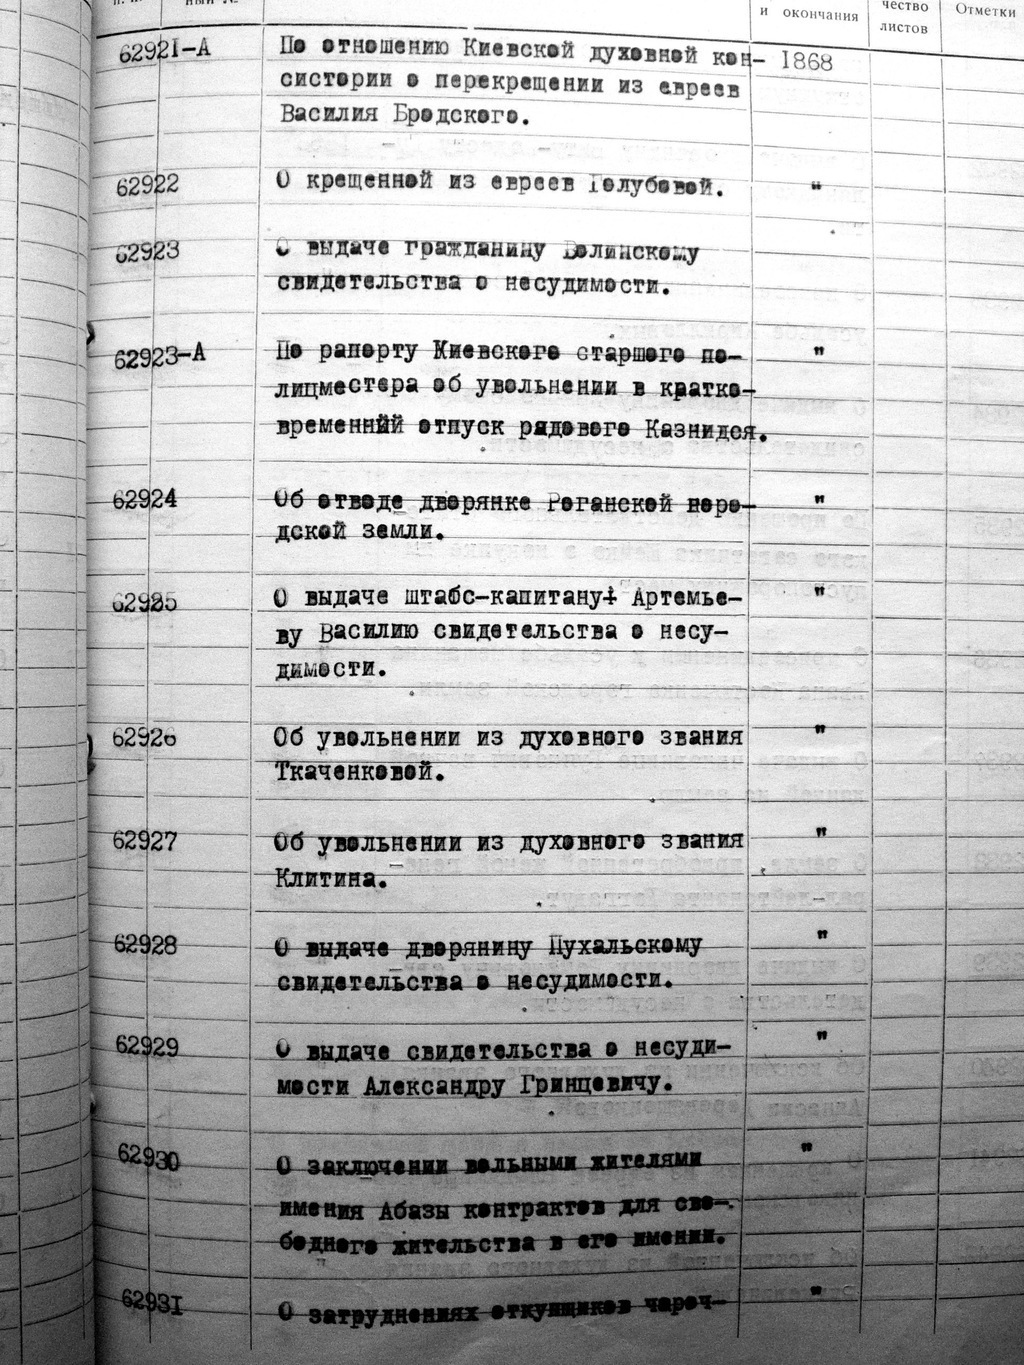 п. п.
ный №
и окончания
чество
листов
Отметки
62921-А По отношению Киевской духовной кон- 1868
систории о перекрещении из евреев
Василия Бродского.
62922 О крещенной из евреев Голубовой. "
62923 О выдаче гражданину Волинскому
свидетельства о несудимости.
62923-А По рапорту Киевского старшего по- "
лицместера об увольнении в кратко-
временный отпуск рядового Казнидея.
62924 Об отводе дворянке Роганской горо- "
дской земли.
62925 О выдаче штабс-капитану Артемье- "
ву Василию свидетельства о несу-
димости.
62926 Об увольнении из духовного звания "
Ткаченковой.
62927 Об увольнении из духовного звания "
Клитина.
62928 О выдаче дворянину Пухальскому "
свидетельства о несудимости.
62929 О выдаче свидетельства о несуди- "
мости Александру Гринцевичу.
62930 О заключении вольными жителями "
имения Абазы контрактов для сво-
бодного жительства в его имении.
62931 О затруднениях откупщиков чароч- "